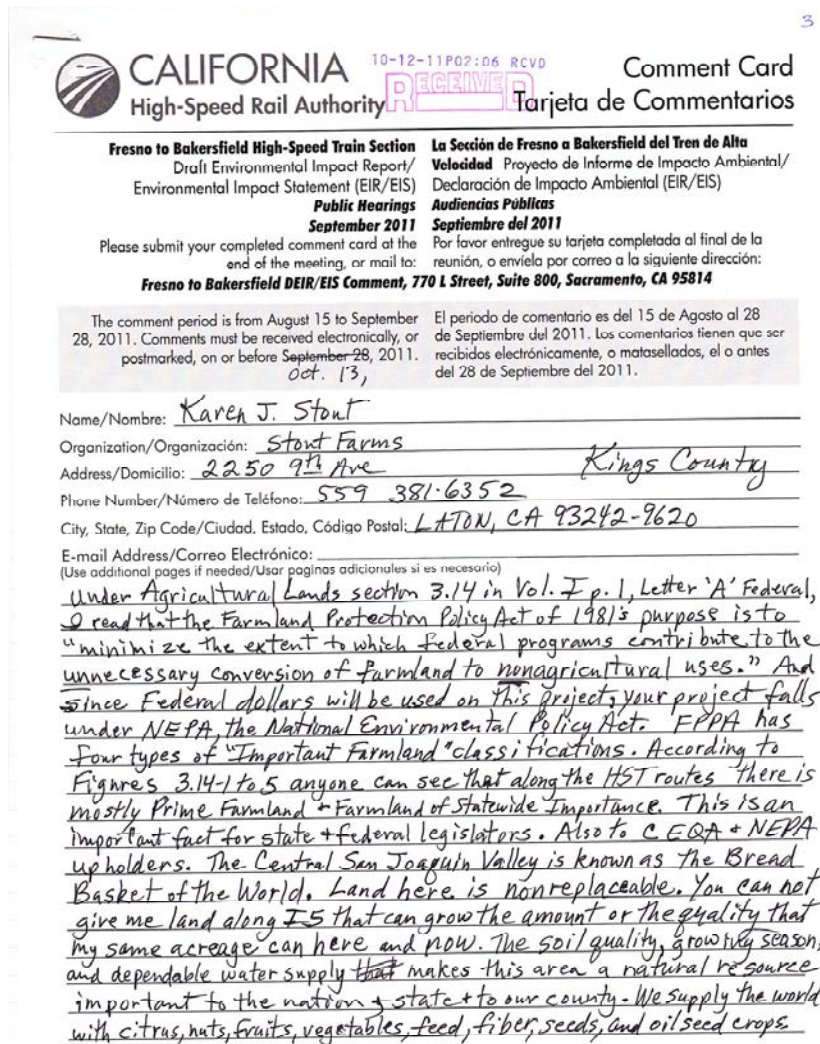 3
CALIFORNIA
High-Speed Rail Authority
10-12-11P02:06 RCVD
RECEIVED
Comment Card
Tarjeta de Commentarios
Fresno to Bakersfield High-Speed Train Section
Draft Environmental Impact Report/
Environmental Impact Statement (EIR/EIS)
Public Hearings
September 2011
Please submit your completed comment card at the
end of the meeting, or mail to:
La Sección de Fresno a Bakersfield del Tren de Alta
Velocidad Proyecto de Informe de Impacto Ambiental/
Declaración de Impacto Ambiental (EIR/EIS)
Audiencias Públicas
Septiembre del 2011
Por favor entregue su tarjeta completada al final de la
reunión, o envíela por correo a la siguiente dirección:
Fresno to Bakersfield DEIR/EIS Comment, 770 L Street, Suite 800, Sacramento, CA 95814
The comment period is from August 15 to September
28, 2011. Comments must be received electronically, or
postmarked, on or before September 28, 2011.
Oct. 13,
El periodo de comentario es del 15 de Agosto al 28
de Septiembre del 2011. Los comentarios tienen que ser
recibidos electrónicamente, o matasellados, el o antes
del 28 de Septiembre del 2011.
Name/Nombre: Karen J. Stout
Organization/Organización: Stout Farms
Address/Domicilio: 2250 9th Ave Kings County
Phone Number/Número de Teléfono: 559 381-6352
City, State, Zip Code/Ciudad, Estado, Código Postal: LATON, CA 93242-9620
E-mail Address/Correo Electrónico:
(Use additional pages if needed/Usar paginas adicionales si es necesario)
Under Agricultural Lands section 3.14 in Vol. I p. 1, Letter 'A' Federal,
I read that the Farmland Protection Policy Act of 1981's purpose is to
"minimize the extent to which federal programs contribute to the
unnecessary conversion of farmland to nonagricultural uses." And
since Federal dollars will be used on this project, your project falls
under NEPA, the National Environmental Policy Act. FPPA has
four types of "Important Farmland" classifications. According to
Figures 3.14-1 to 5 anyone can see that along the HST routes there is
mostly Prime Farmland + Farmland of Statewide Importance. This is an
important fact for state + federal legislators. Also to CEQA + NEPA
upholders. The Central San Joaquin Valley is known as the Bread
Basket of the World. Land here is nonreplaceable. You can not
give me land along I5 that can grow the amount or the quality that
my same acreage can here and now. The soil quality, growing season,
and dependable water supply that makes this area a natural resource
important to the nation + state + to our county. We supply the world
with citrus, nuts, fruits, vegetables, feed, fiber, seeds, and oilseed crops.